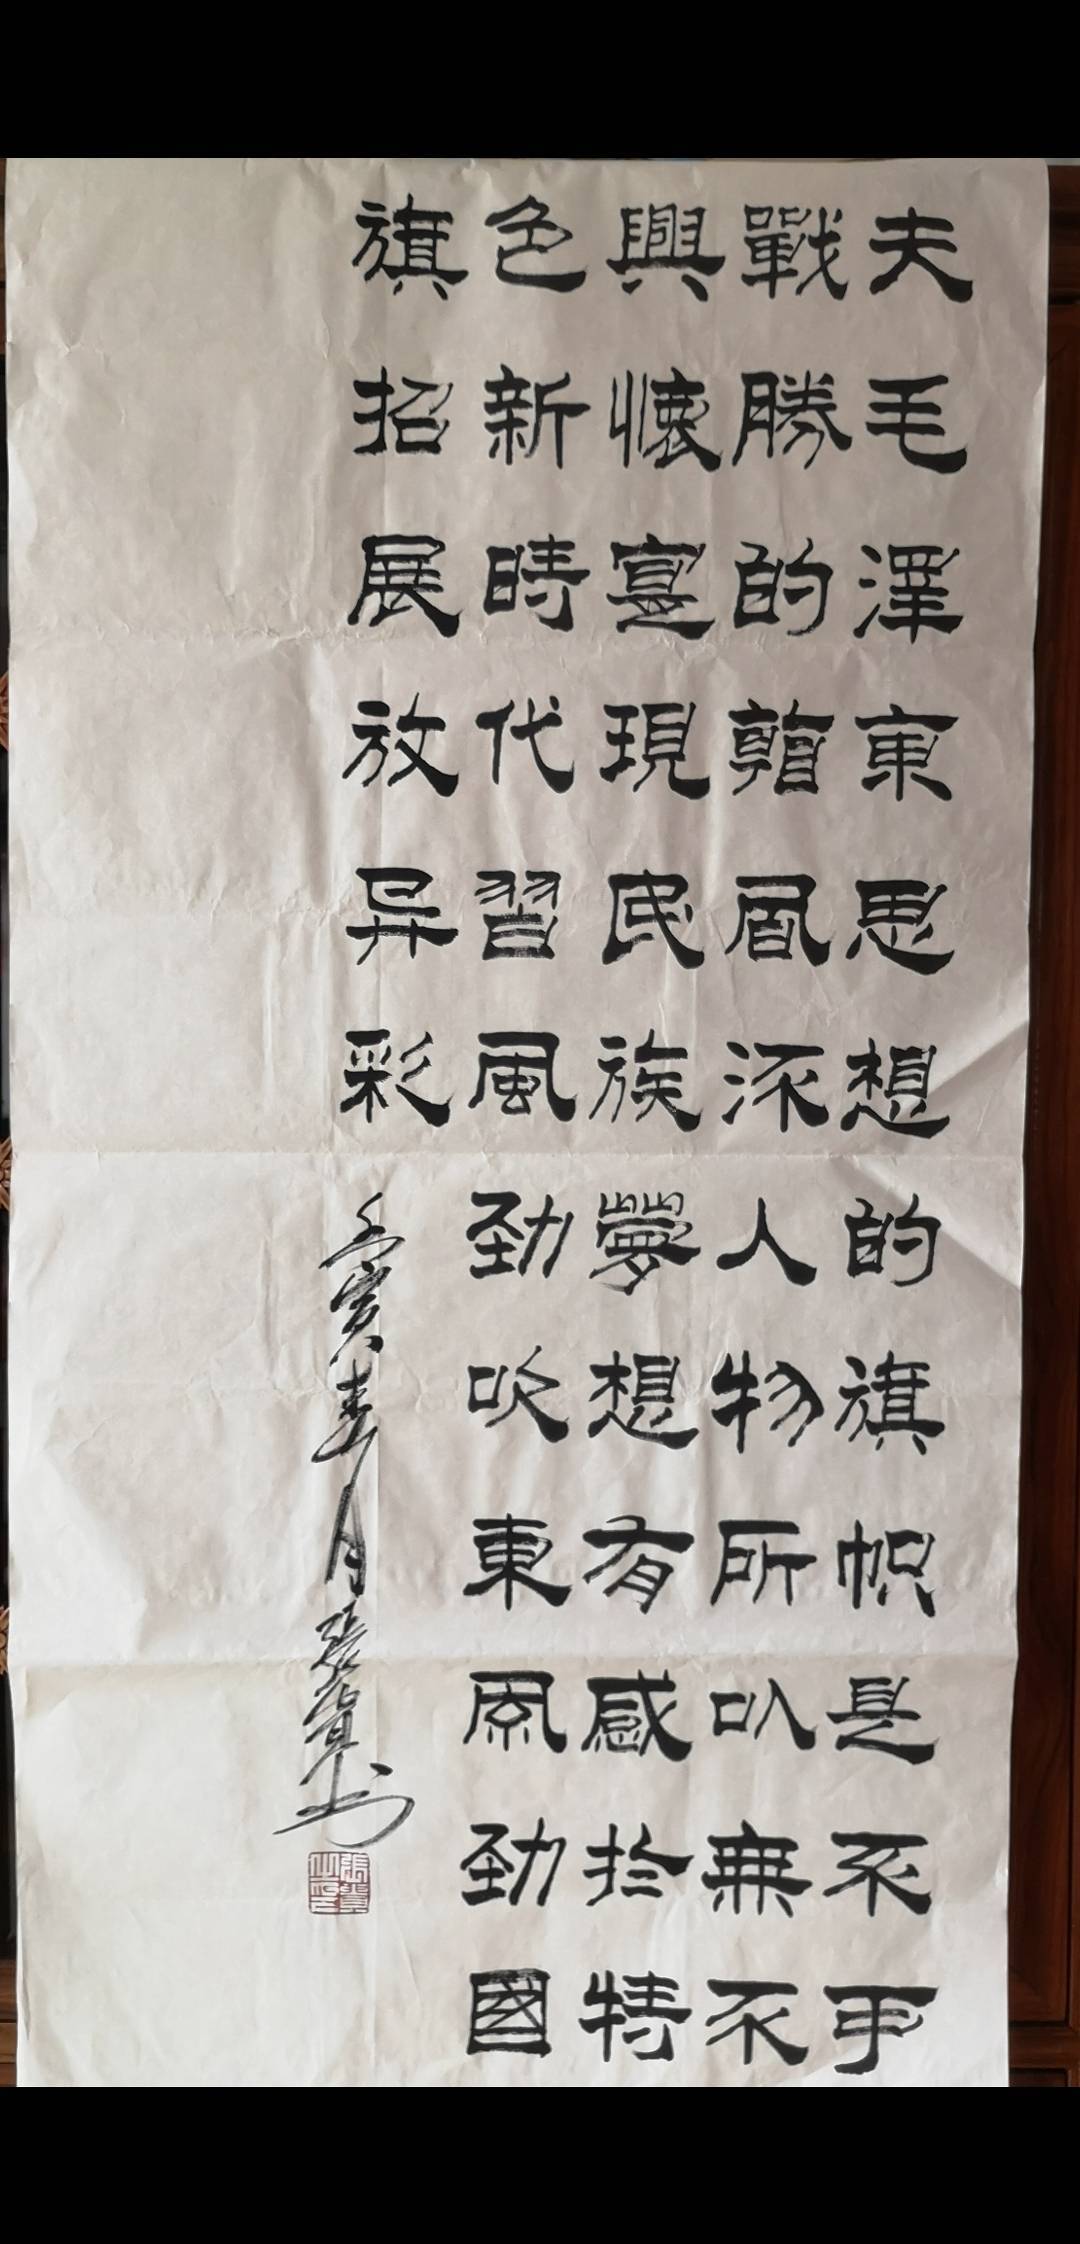 夫毛澤東思想的旗帜是不可
戰勝的風流人物所以無不
興懷寔現民族夢想有感於特
色新時代習風劲吹東風劲國
旗招展放异彩
壬寅春月張書